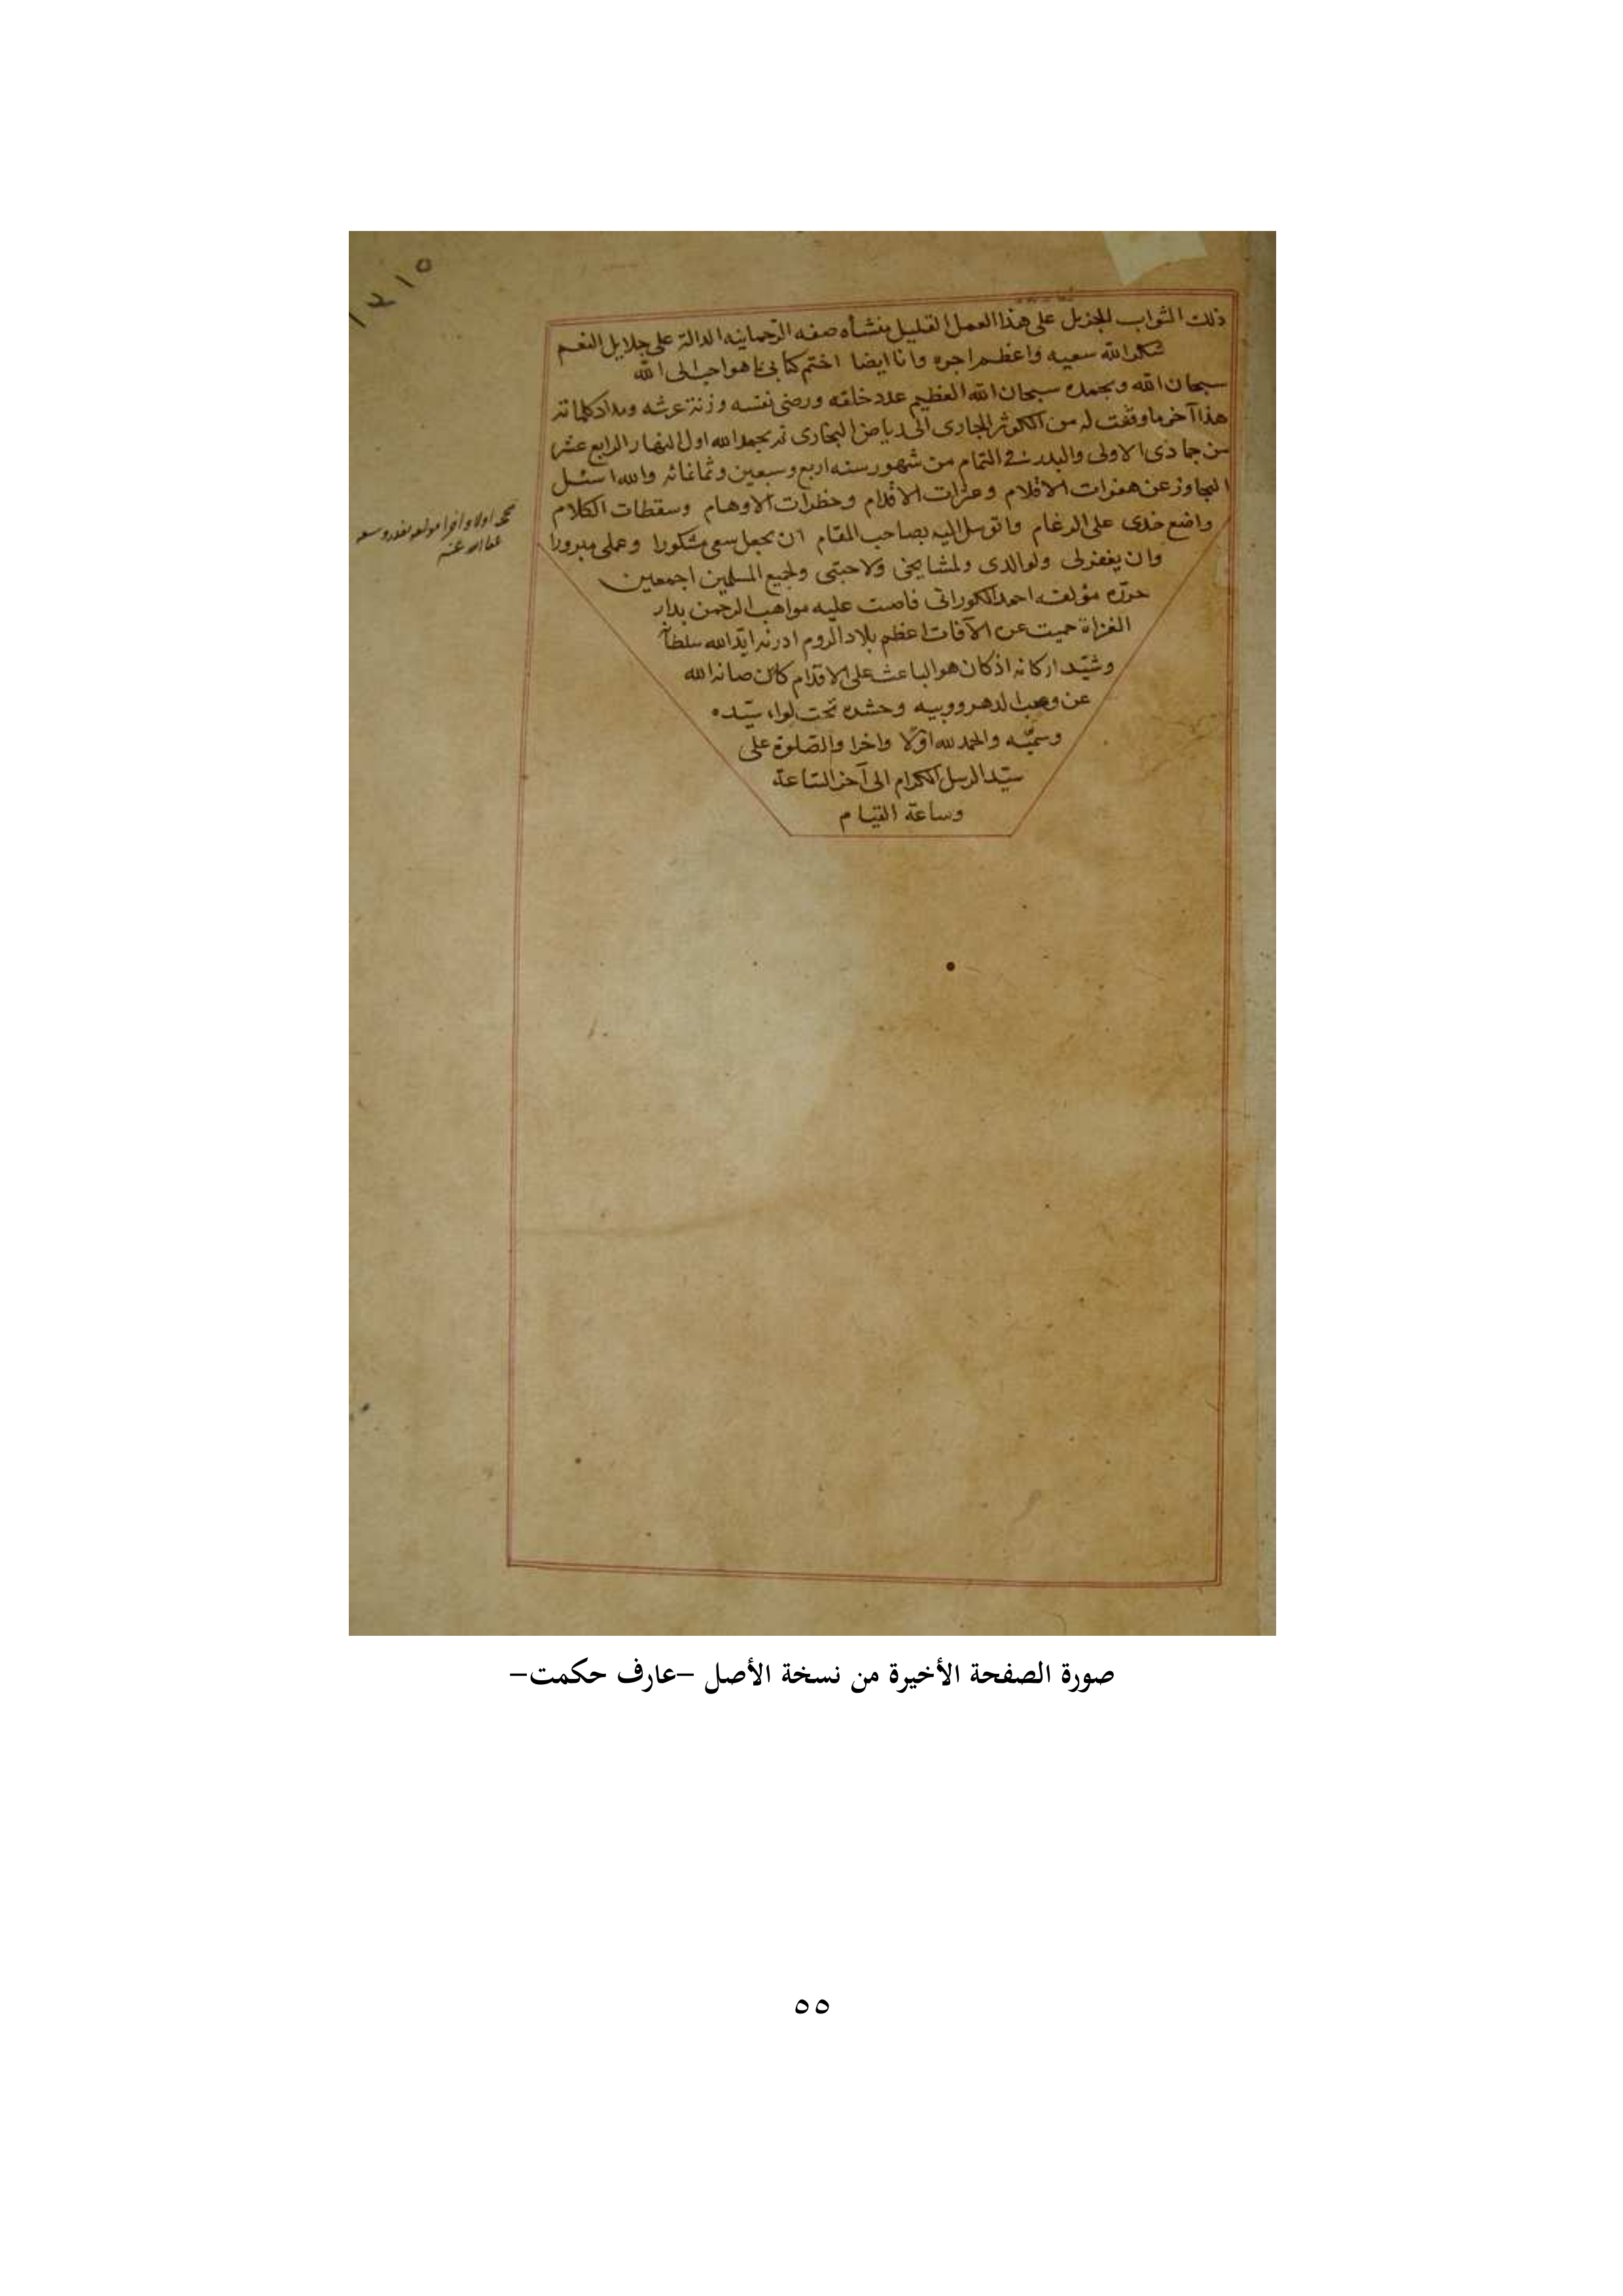 ١٢١٥
ذلك الثواب الجزيل على هذا العمل القليل منشأه صفه الرحمانيه الدالة على جلايل النعم
شكر الله سعيه واعظم اجره وانا ايضا اختم كتابى بما هو احب الى الله
سبحان الله وبحمده سبحان الله العظيم عدد خلقه ورضى نفسه وزنة عرشه ومداد كلماته
هذا آخر ما وفقت له من الكوثر الجارى الى رياض البخارى تم بحمد الله اول النهار الرابع عشر
من جمادى الاولى والبدر فى التمام من شهور سنه اربع وسبعين وثمانمائه والله اسئل
التجاوز عن هفوات الاقلام وعثرات الاقدام وخطرات الاوهام وسقطات الكلام
واضع خدى على الرغام واتوسل اليه بصاحب المقام ان يجعل سعى مشكورا وعملى مبرورا
وان يغفر لى ولوالدى ولمشايخى ولاحبتى ولجميع المسلمين اجمعين
حرّره مؤلفه احمد الكورانى فاضت عليه مواهب الرحمن بدار
الغزاة حميت عن الآفات اعظم بلاد الروم ادرنه ايّد الله سلطانها
وشيّد اركانه اذ كان هو الباعث على الاقدام كان صانه الله
عن الدهر وريبه وحشره تحت لواء سيّده
وسميّه والحمد لله اوّلا واخرا والصّلوة على
سيّد الرسل الكرام الى آخر السّاعة
وساعة القيام
اولا واخرا
عفا الله عنه
صورة الصفحة الأخيرة من نسخة الأصل –عارف حكمت–
٥٥